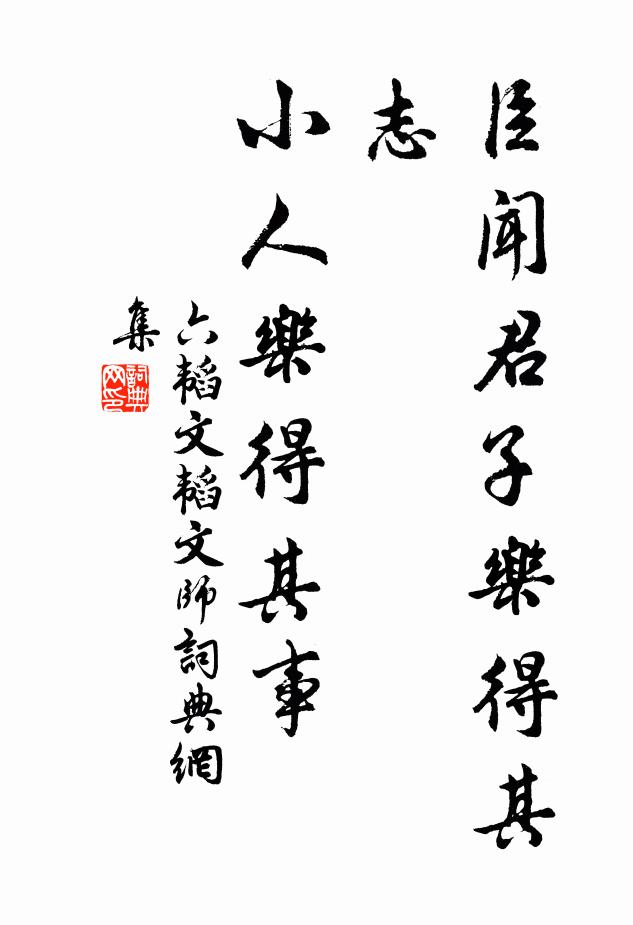 臣聞君子樂得其
志
小人樂得其事
六韜文韜文師詞典網
集
詞典网印